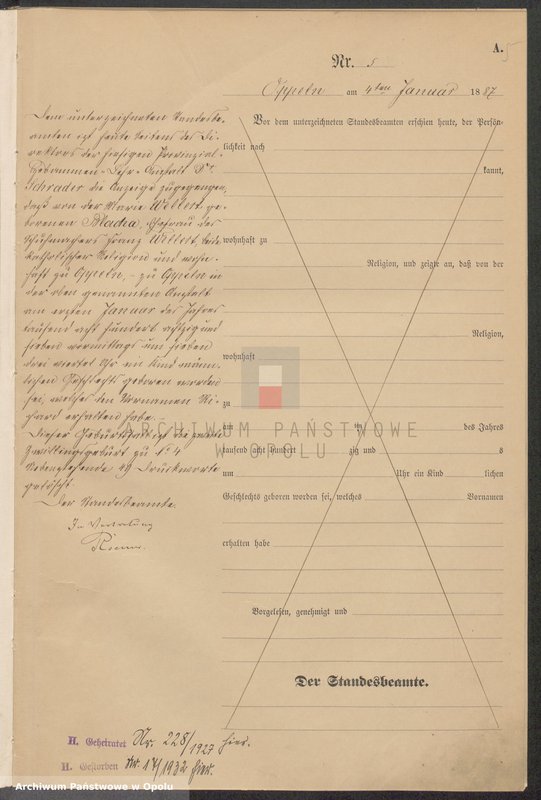 A. 5
Nr. 5
Oppeln am 4ten Januar 1887
Dem unterzeichneten Standesbe-
amten ist heute seitens des Di-
rektors der hiesigen Provinzial-
Hebammen-Lehr-Anstalt Dr.
Schrader die Anzeige zugegangen,
daß von der Marie Wellert ge-
borenen Macha, Ehefrau des
Schuhmachers Franz Wellert, beide
katholischer Religion und wohn-
haft zu Oppeln, zu Oppeln in
der oben genannten Anstalt
am ersten Januar des Jahres
tausend acht hundert achtzig und
sieben vormittags um sieben
drei viertel Uhr ein Kind männ-
lichen Geschlechts geboren worden
sei, welches den Vornamen Ri-
chard erhalten habe.
Dieser Geburtsfall ist die zweite
Zwillingsgeburt zu No 4
Nebenstehende 49 Druckworte
gelöscht.
Der Standesbeamte.
In Vertretung
Vor dem unterzeichneten Standesbeamten erschien heute, der Persön-
lichkeit nach
kannt,
wohnhaft zu
Religion, und zeigte an, daß von der
Religion,
wohnhaft
zu
am ten des Jahres
tausend acht hundert zig und s
um Uhr ein Kind lichen
Geschlechts geboren worden sei, welches Vornamen
erhalten habe
Vorgelesen, genehmigt und
Der Standesbeamte.
H. Geheiratet Nr. 228/1927 hier.
H. Gestorben Nr. 14/1932 hier.
ARCHIWUM PAŃSTWOWE
W OPOLU
Archiwum Państwowe w Opolu